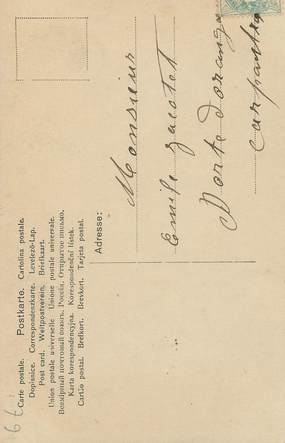 Carte postale. Postkarte. Cartolina postale.
Dopisnice. Correspondenzkarte. Levelező-Lap.
Post card. Weltpostverein. Briefkaart.
Union postale universelle. Unione postale universale.
Всемірный почтовый союзъ. Россія. Открытое письмо.
Karta korespondencyjna. Korespondenční listek.
Cartão postal. Brefkort. Brevkort. Tarjeta postal.
Adresse:
Monsieur
Emile Jacotet
Porte d'orange
Carpentras